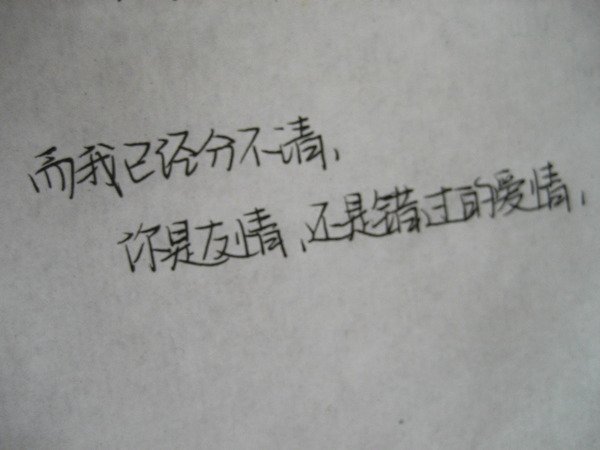 而我已经分不清,
你是友情,还是错过的爱情,